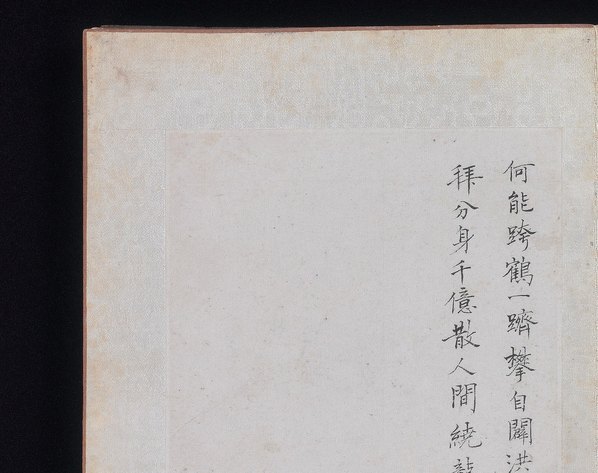 何能跨鶴一躋攀自闢洪
拜分身千億散人間繞